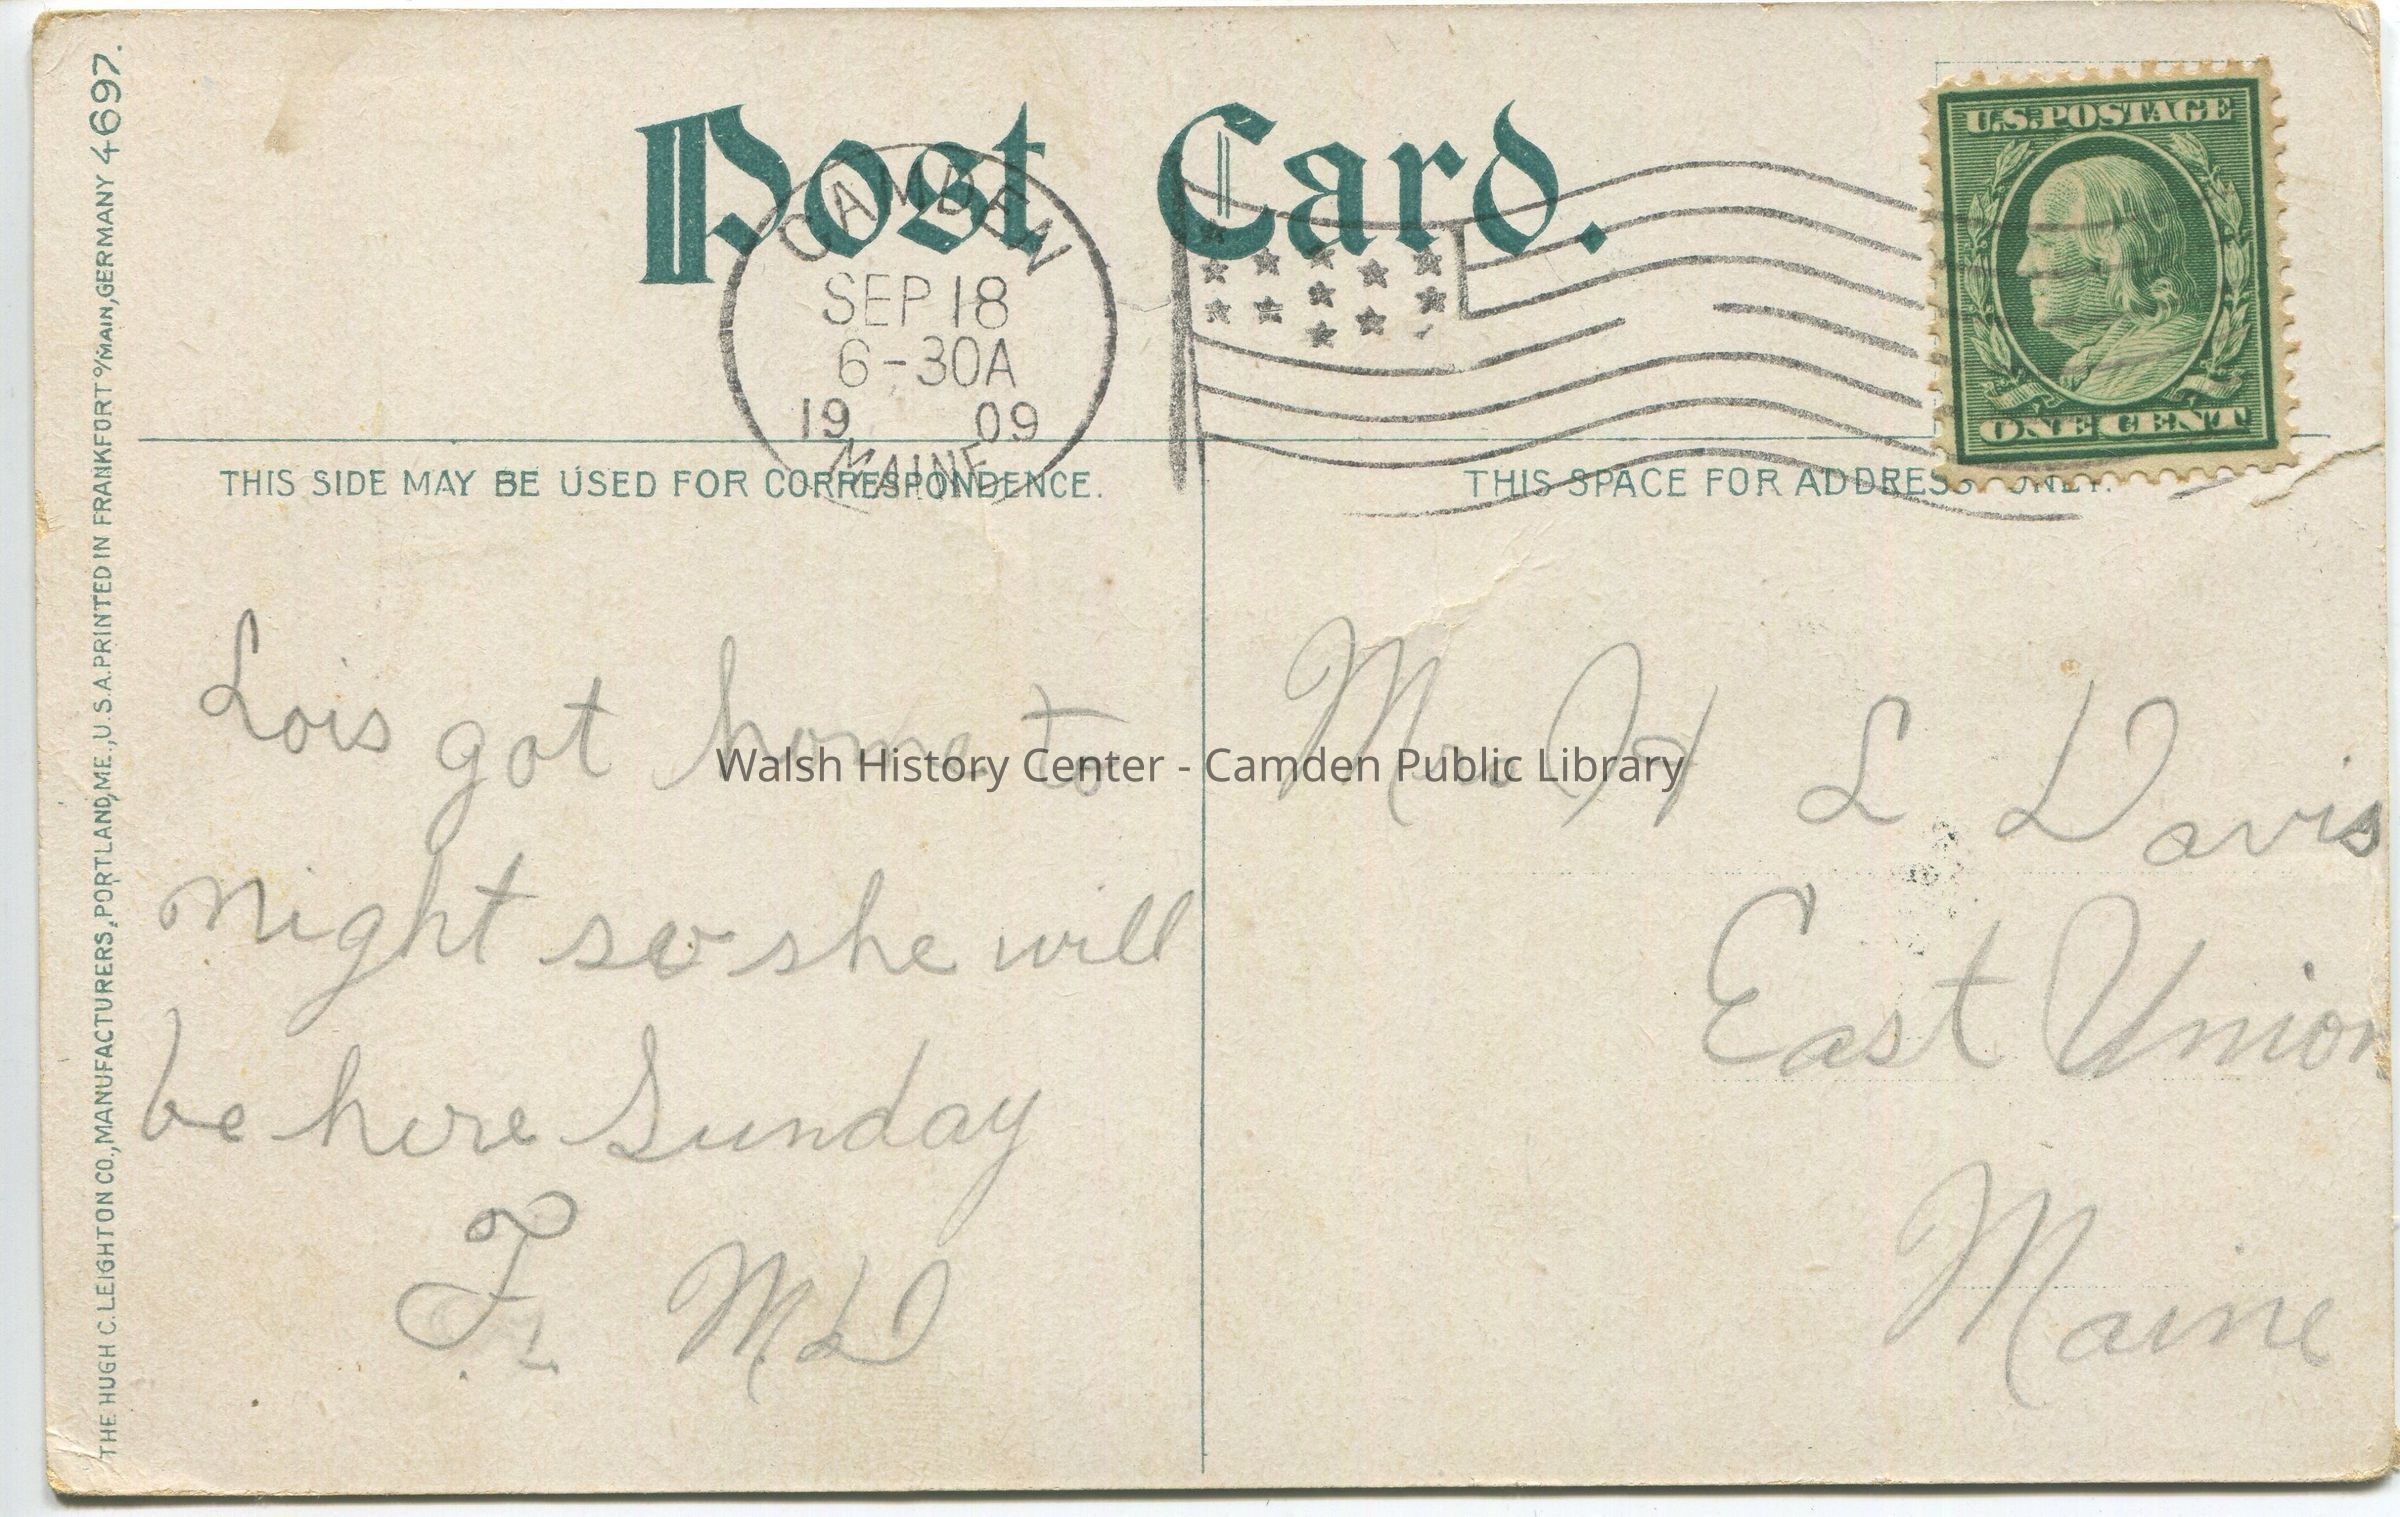 THE HUGH C. LEIGHTON CO., MANUFACTURERS, PORTLAND, ME., U.S.A. PRINTED IN FRANKFORT o/MAIN, GERMANY 4697.
Post Card.
CAMDEN
SEP 18
6-30A
19 09
MAINE
U.S. POSTAGE
ONE CENT
THIS SIDE MAY BE USED FOR CORRESPONDENCE.
THIS SPACE FOR ADDRESS ONLY.
Lois got home to
night so she will
be here Sunday
F. M L D
H L Davis
East Union
Maine
Walsh History Center - Camden Public Library